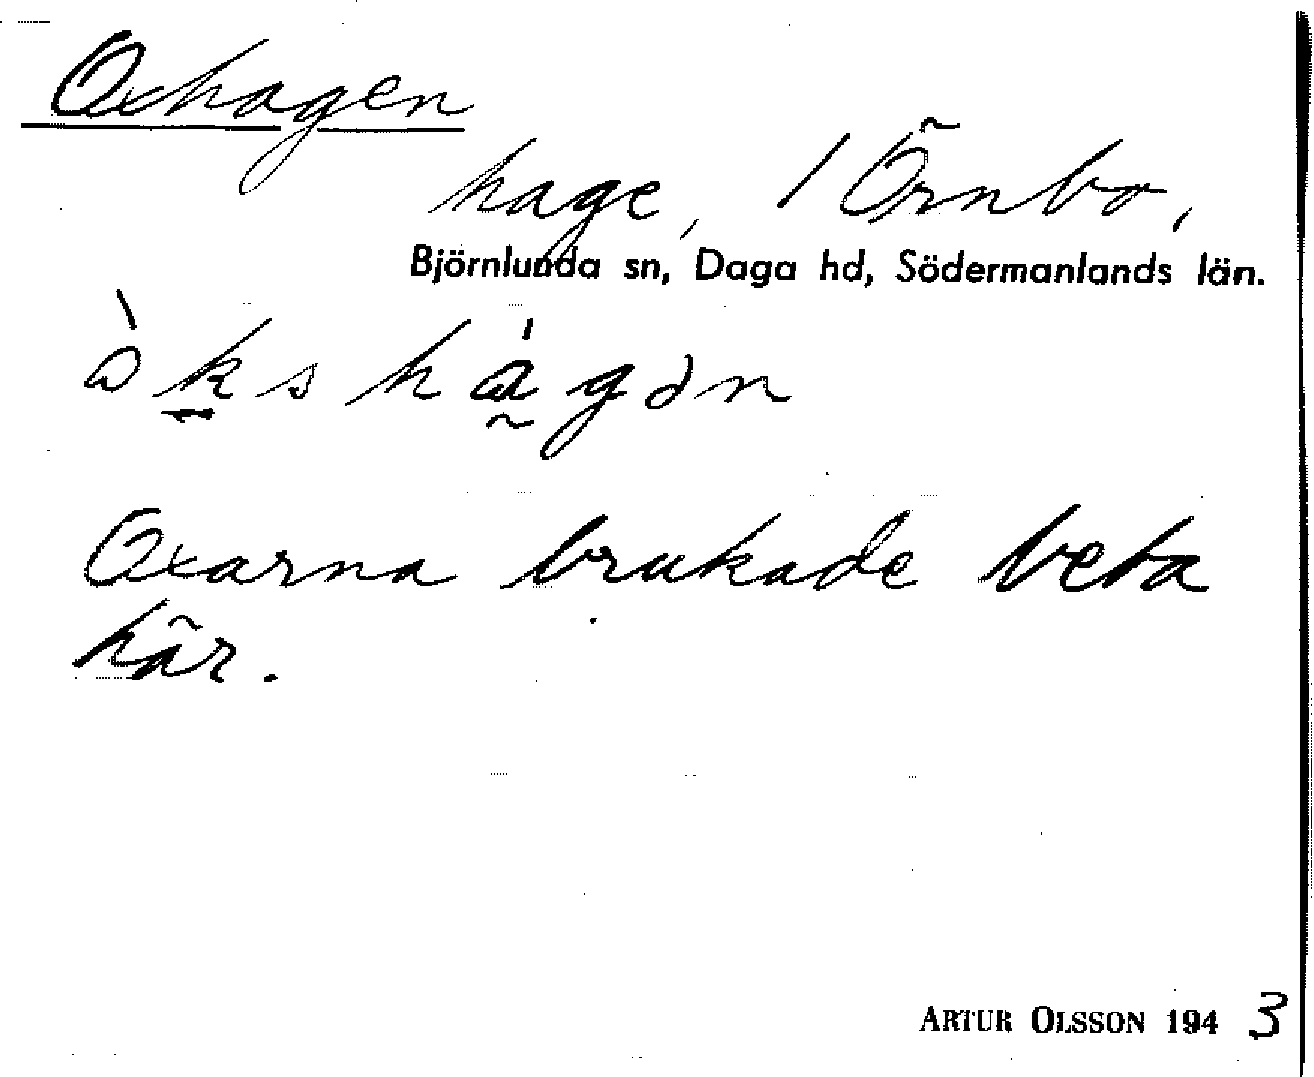 Oxhagen
hage, 1 Örnbo,
Björnlunda sn, Daga hd, Södermanlands län.
òkshágən
Oxarna brukade beta
här.
ARTUR OLSSON 1943